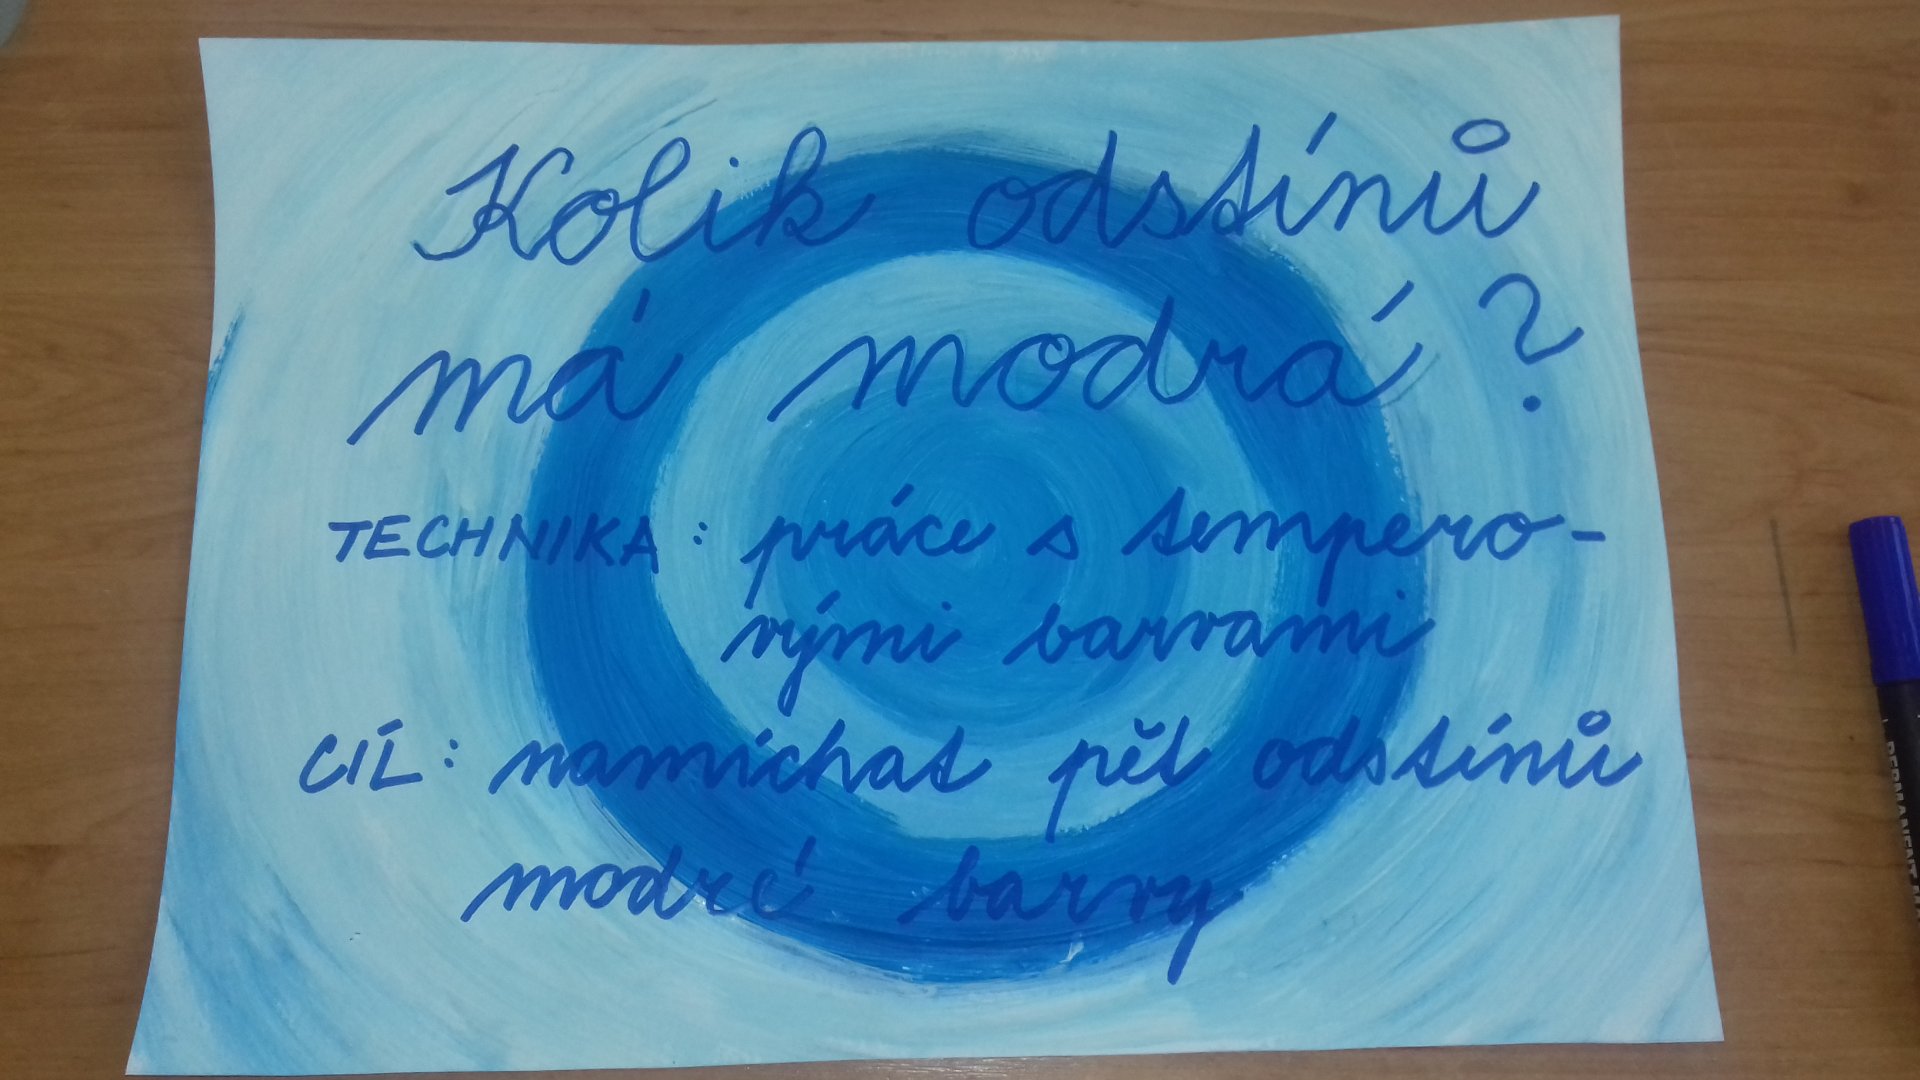 Kolik odstínů
má modrá?
TECHNIKA: práce s tempero-
vými barvami
CÍL: namíchat pět odstínů
modré barvy
PERMANENT